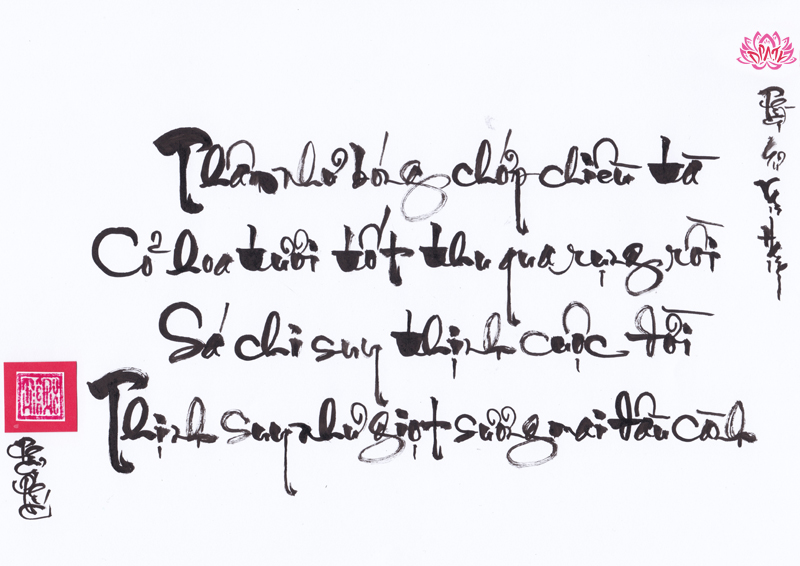 Thân như bóng chớp chiều tà
Cỏ hoa tươi tốt thu qua rụng rời
Sá chi suy thịnh cuộc đời
Thịnh suy như giọt sương mai đầu cành
Sư Vạn Hạnh